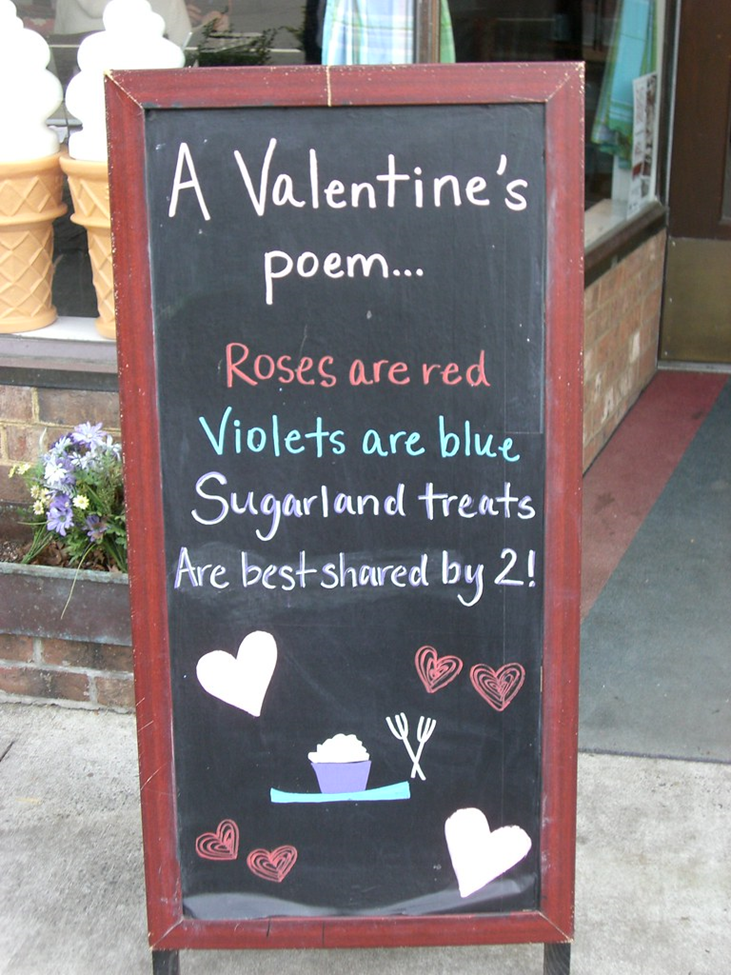 A Valentine's
poem...
Roses are red
Violets are blue
Sugarland treats
Are best shared by 2!